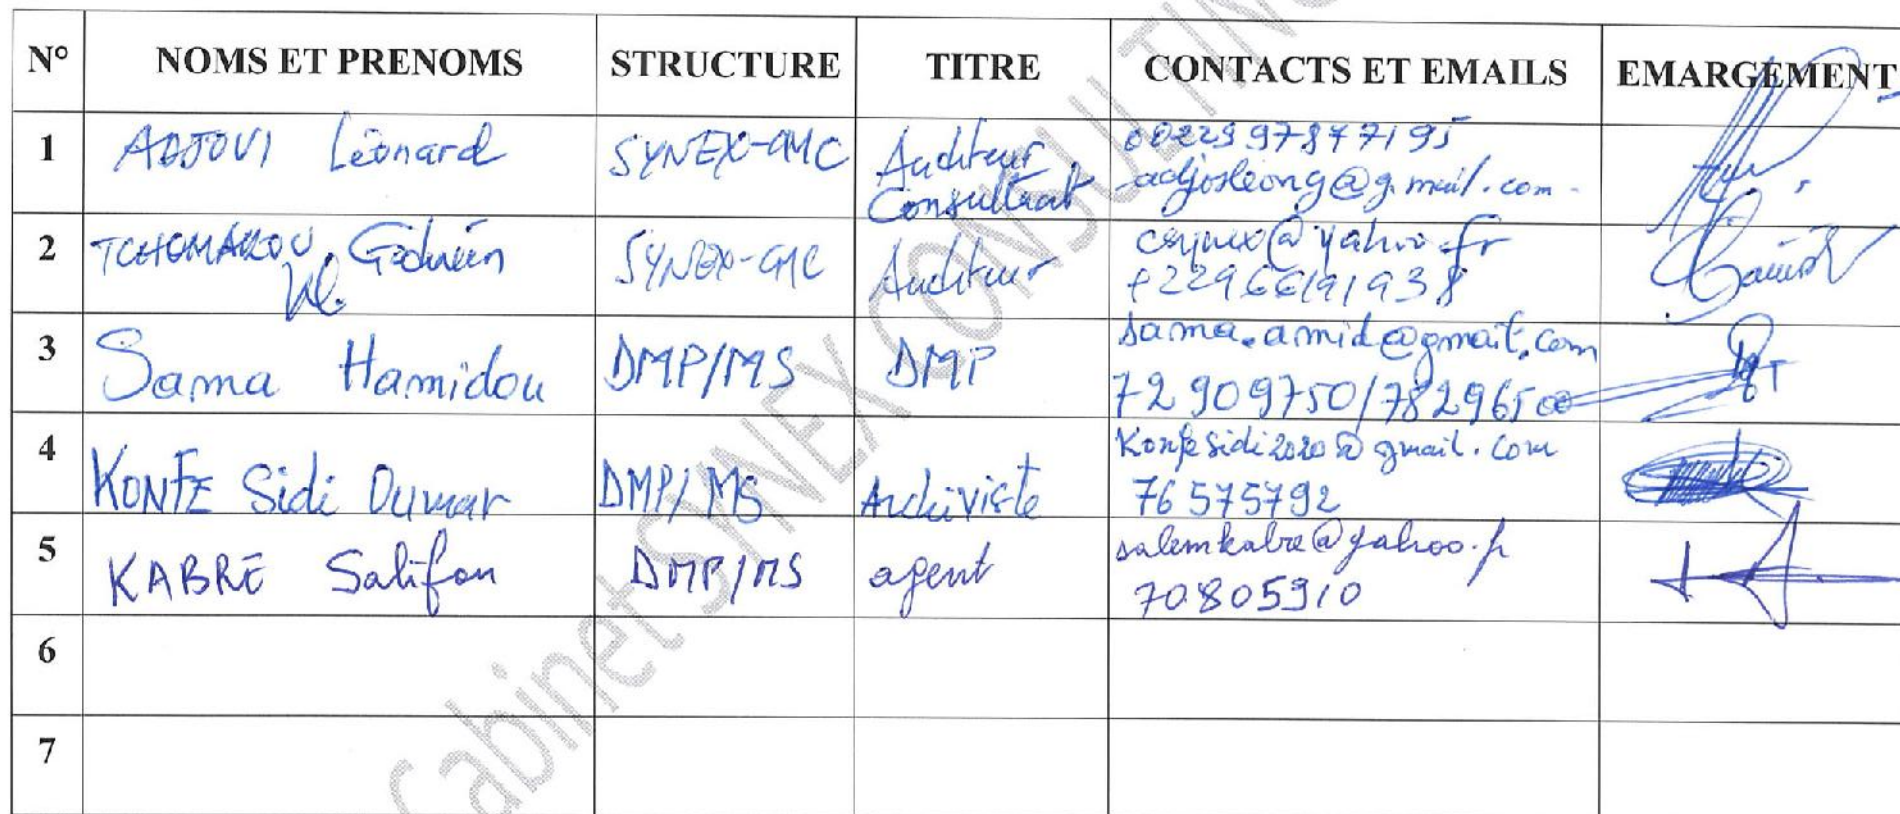 N° NOMS ET PRENOMS STRUCTURE TITRE CONTACTS ET EMAILS EMARGEMENT
1 ADJOVI Léonard SYNEX-GMC Auditeur Consultant 0022997847195
adjosleong@gmail.com
2 TCHOMAKOU SYNEX-GMC Auditeur @yahoo.fr
+22966191938
3 Sama Hamidou DMP/MS DMP sama.amid@gmail.com
72909750/78296500
4 KONFE Sidi Oumar DMP/MS Archiviste Konfesidi2020@gmail.com
76575792
5 KABRE Salifou DMP/MS agent salemkabre@yahoo.fr
70805910
6
7
Cabinet SYNEX CONSULTING